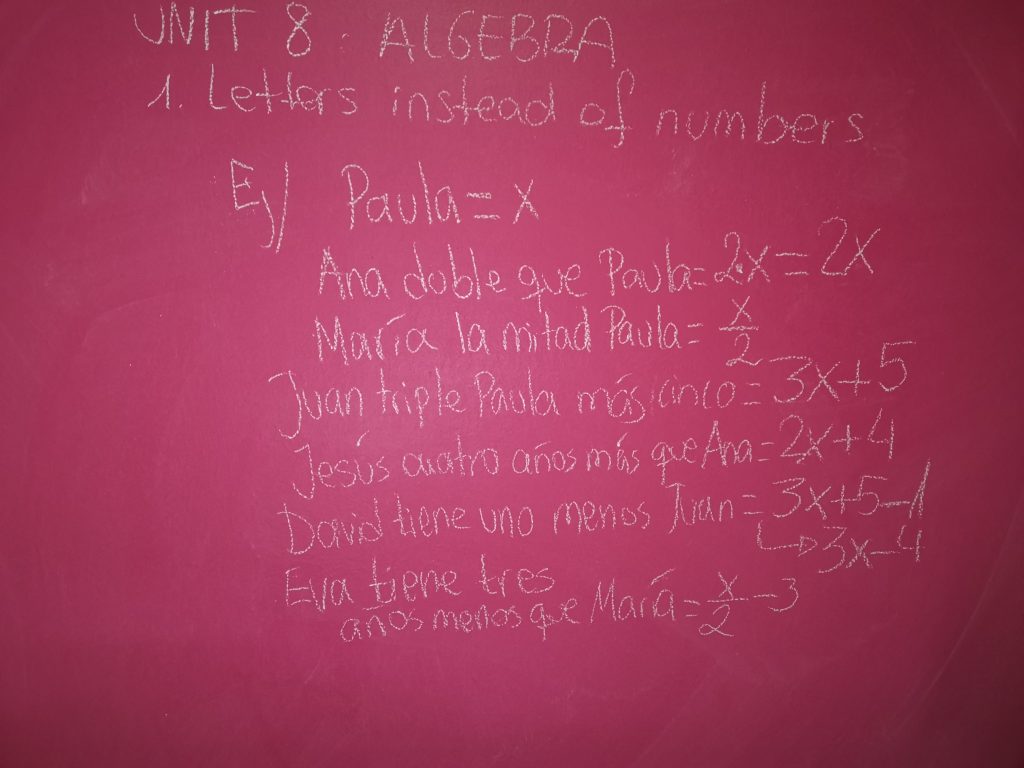 UNIT 8. ALGEBRA
1. Letters instead of numbers
Ej/ Paula = x
Ana doble que Paula = 2·x = 2x
María la mitad Paula = x/2
Juan triple Paula más cinco = 3x + 5
Jesús cuatro años más que Ana = 2x + 4
David tiene uno menos Juan = 3x + 5 - 1
↳ 3x - 4
Eva tiene tres
años menos que María = x/2 - 3